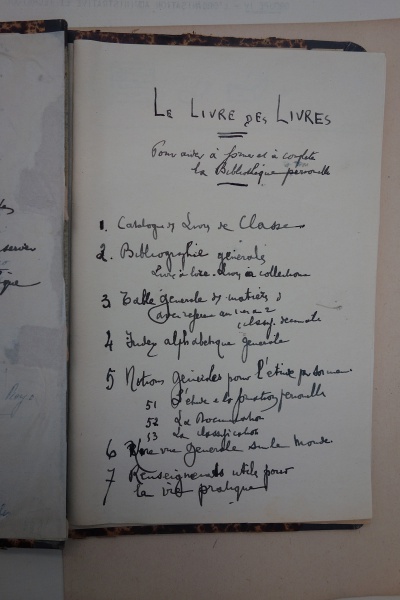 LE LIVRE DES LIVRES
Pour aider à former et à complèter
la Bibliothèque personnelle
1. Catalogue des Livres de Classe
2. Bibliographie générale
Livres à lire. Livres à collectionner
3 Table générale des matières
avec référence au 1 et 2
classif. décimale
4 Index alphabétique général
5 Notions générales pour l'étude personnelle
51 L'étude et la formation personnelle
52 La Documentation
53 La classification
6 vue générale sur le Monde.
7 Renseignements utiles pour
la vie pratique